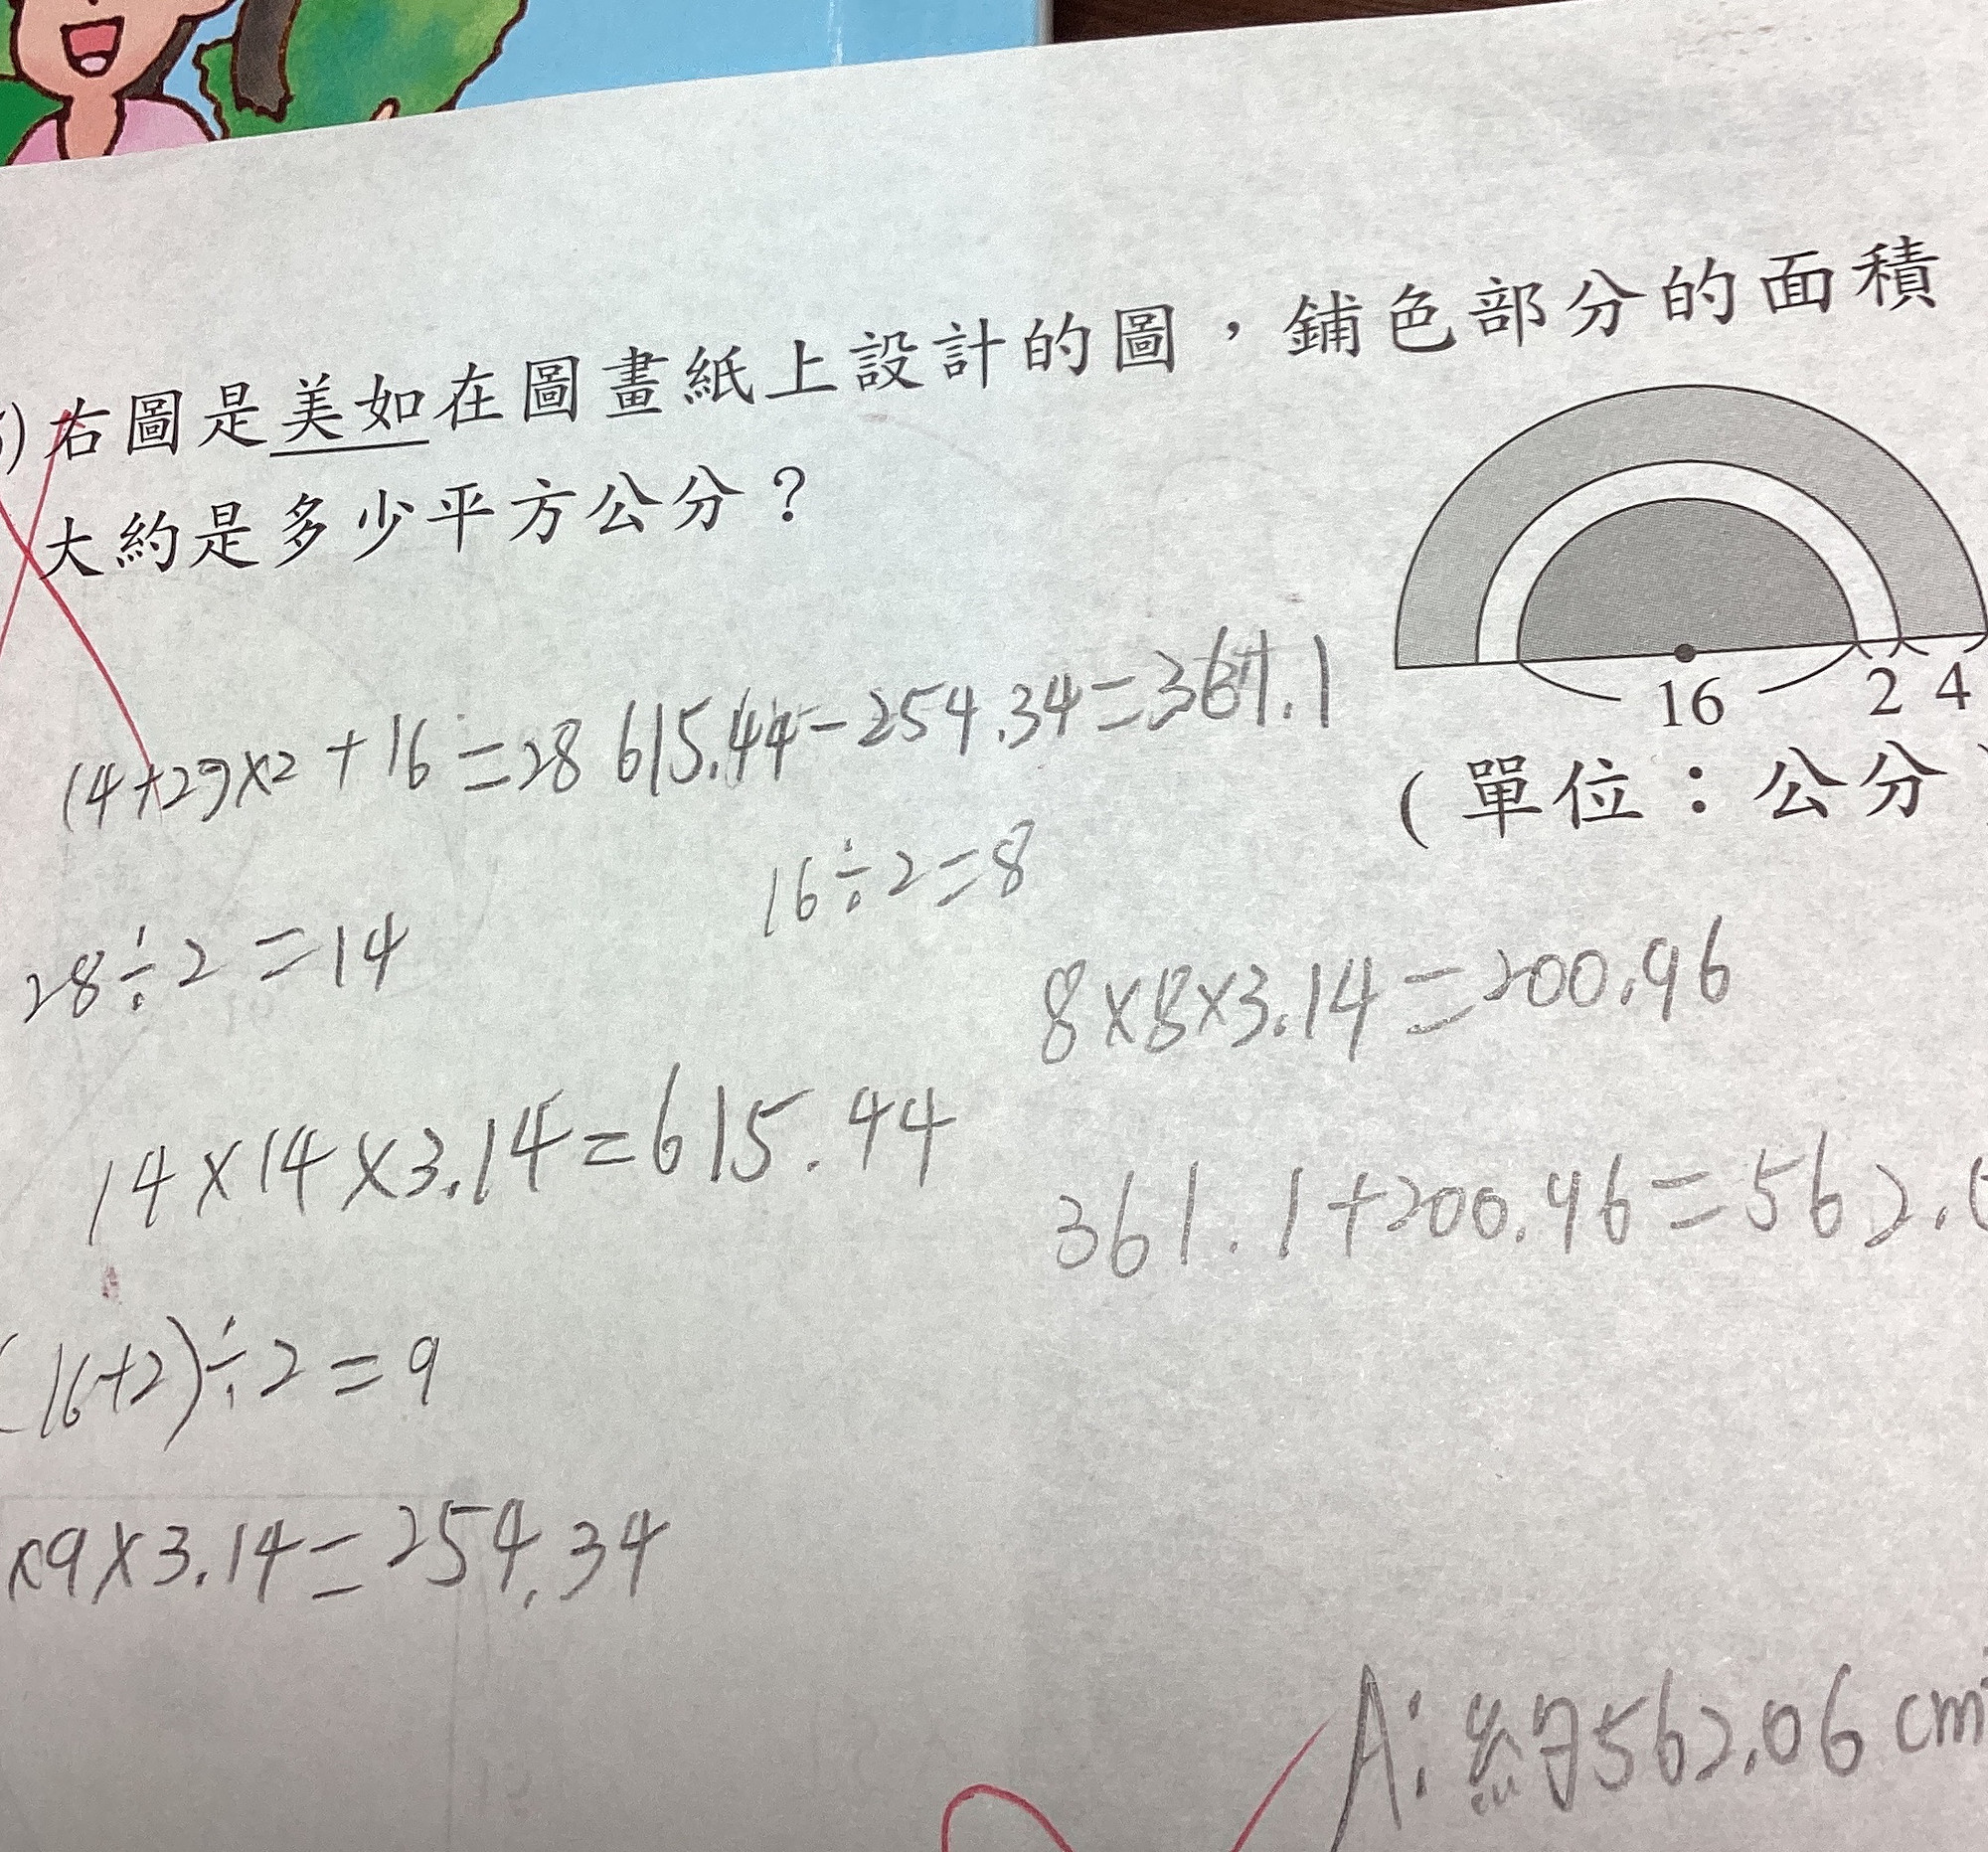 )右圖是美如在圖畫紙上設計的圖，鋪色部分的面積
大約是多少平方公分？
16 2 4
(單位：公分
(4+2)×2+16=28 615.44-254.34=361.1
16÷2=8
28÷2=14
8×8×3.14=200.96
14×14×3.14=615.44
361.1+200.96=562.
(16+2)÷2=9
×9×3.14=254.34
A:約562.06cm